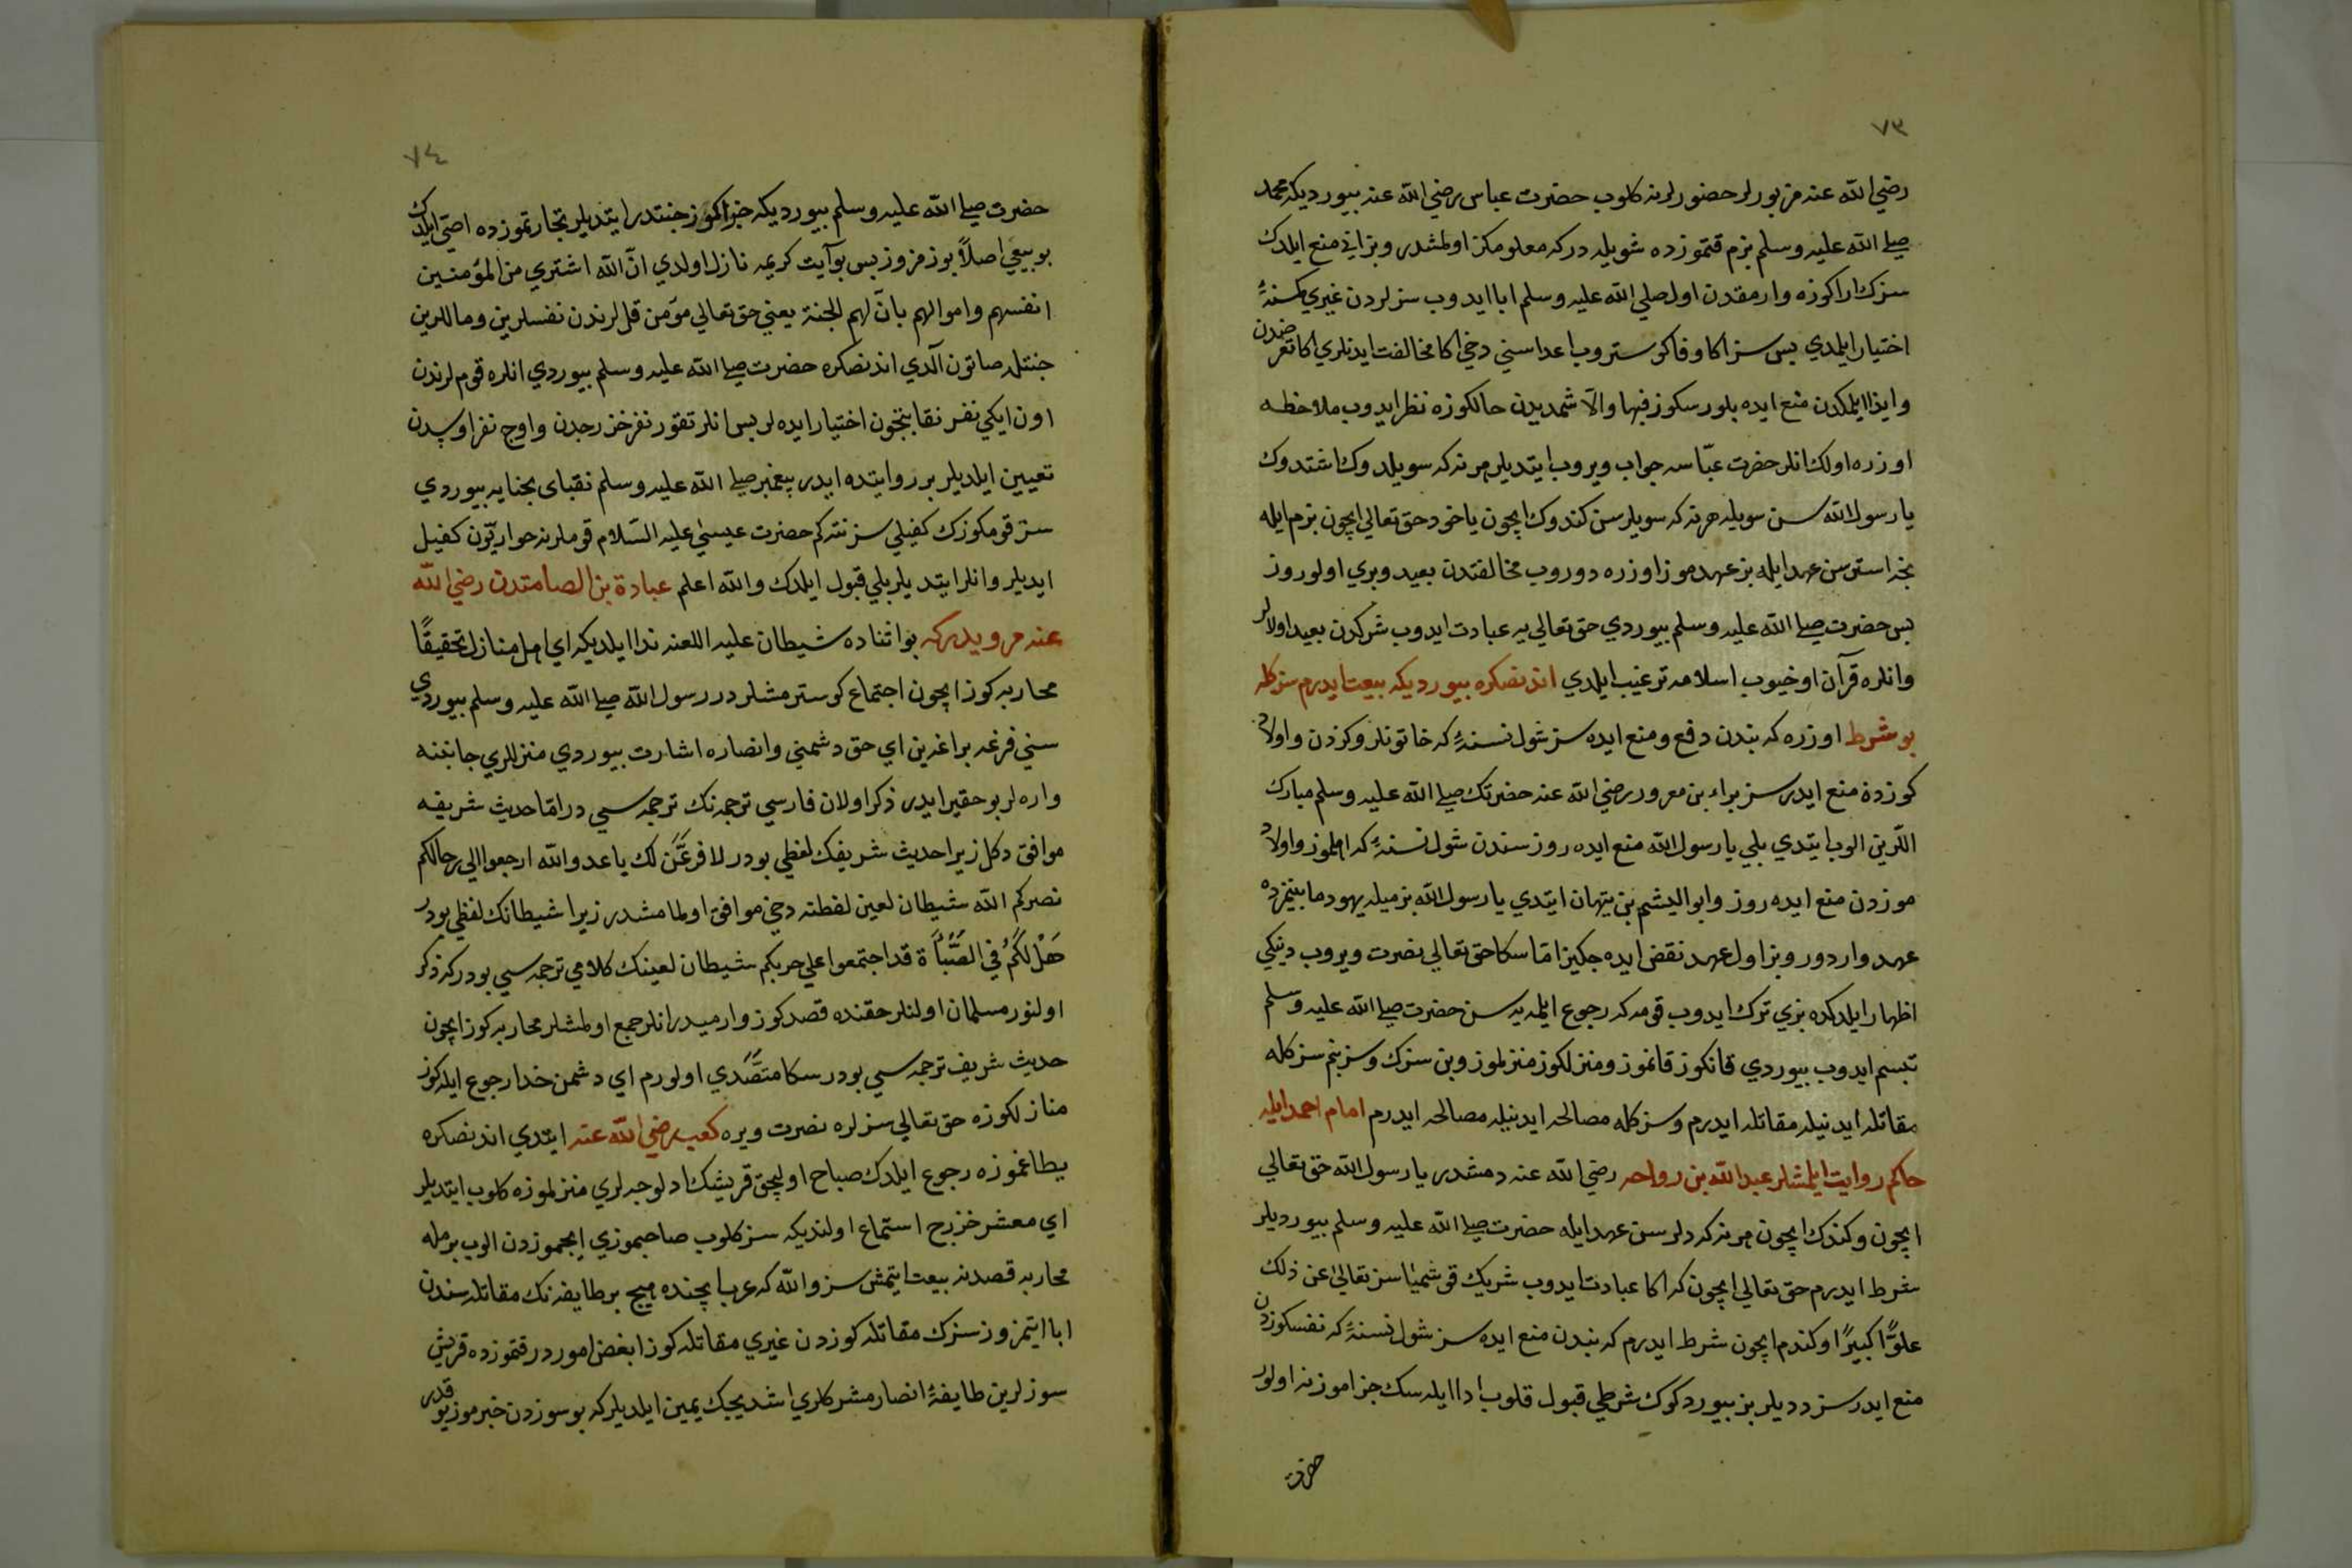 ٧٣
رضي الله عنه مزبورلر حضورلرنه كلوب حضرت عباس رضي الله عنه بيورديكه محمد
صلي الله عليه وسلم بزم قتموزده شويله دركه معلومكز اولمشدر وبز اني منع ايلدك
سزك اراكوزه وارمقدن اول صلي الله عليه وسلم ابا ايدوب سزلردن غيري كمسنهٔ
اختيار ايلمدي بس سز اكا وفا كوستروب اعداسني دخي اكا مخالفت ايدنلري اكا تعرضدن
وايذا ايلمكدن منع ايده بلورسكوز فبها والّا شمديدن حالكوزه نظر ايدوب ملاحظه
اوزره اولك انلر حضرت عبّاسه جواب ويروب ايتديلر هر نه كه سويلدوك اشتدوك
يا رسول الله سن سويله هر نه كه سويلرسن كندوك ايچون ياخود حق تعالي ايچون بزم ايله
نجه استرسن عهد ايله بز عهدموز اوزره دوروب مخالفتدن بعيد وبري اولوروز
بس حضرت صلي الله عليه وسلم بيوردي حق تعالي يه عبادت ايدوب شركدن بعيد اولالر
وانلره قرآن اوخيوب اسلامه ترغيب ايلدي اندنصكره بيورديكه بيعت ايدرم سزكله
بو شرط اوزره كه بندن دفع ومنع ايده سز شول نسنهٔ كه خاتونلروكزدن واولاد
كوزدن منع ايدرسز براء بن معرور رضي الله عنه حضرتك صلي الله عليه وسلم مبارك
اللّرين الوب ايتدي بلي يا رسول الله منع ايده روز سندن شول نسنهٔ كه اهلموز واولاد
موزدن منع ايده روز وابو الهيثم بن تيهان ايتدي يا رسول الله بزميله يهود مابينمزده
عهد واردور وبز اول عهد نقض ايده جكيز امّا سكا حق تعالي نصرت ويروب دينكي
اظهار ايلدكده بزي ترك ايدوب قومكه رجوع ايلميه سن حضرت صلي الله عليه وسلم
تبسّم ايدوب بيوردي قانكوز قانموز ومنزلكوز منزلموز وبن سزك وسز بنم سزكله
مقاتله ايدنيله مقاتله ايدرم وسزكله مصالحه ايدنيله مصالحه ايدرم امام احمد ايله
حاكم روايت ايلمشلر عبد الله بن رواحه رضي الله عنه دمشدر يا رسول الله حق تعالي
ايچون وكندك ايچون هر نه كه دلرسن عهد ايله حضرت صلي الله عليه وسلم بيورديلر
شرط ايدرم حق تعالي ايچون كه اكا عبادت ايدوب شريك قوشميا سز تعالي عن ذلك
علوًّا كبيرًا وكندم ايچون شرط ايدرم كه بندن منع ايده سز شول نسنهٔ كه نفسكوزدن
منع ايدرسز ديديلر بز بيوردكوك شرطي قبول قلوب ادا ايله سك جزاموز نه اولور
حضرت
٧٤
حضرت صلي الله عليه وسلم بيورديكه جزاكوز جنتدر ايتديلر تجارتموزده اصّي ايلدك
بو بيعي اصلاً بوزمزوز بس بو آيت كريمه نازل اولدي انّ الله اشتري من المؤمنين
انفسهم واموالهم بانّ لهم الجنة يعني حق تعالي مؤمن قللرندن نفسلرين وماللرين
جنتله صاتون آلدي اندنصكره حضرت صلي الله عليه وسلم بيوردي انلره قوملرندن
اون ايكي نفر نقابتچون اختيار ايده لر بس انلر تقوز نفر خزرجدن واوچ نفر اوسدن
تعيين ايلديلر بر روايتده ايدر پيغمبر صلي الله عليه وسلم نقباى نجبايه بيوردي
سز قومكوزك كفيلي سز نته كم حضرت عيسي عليه السّلام قوملرنه حواريّون كفيل
ايديلر وانلر ايتديلر بلي قبول ايلدك والله اعلم عبادة بن الصامتدن رضي الله
عنه مرويدركه بو اثناده شيطان عليه اللعنه ندا ايلديكه اي اهل منازل تحقيقًا
محاربه كوز ايچون اجتماع كوسترمشلردر رسول الله صلي الله عليه وسلم بيوردي
سني فرغه براغرين اي حق دشمني وانصاره اشارت بيوردي منزللري جانبنه
واره لر بو حقير ايدر ذكر اولان فارسي ترجمه نك ترجمه سي در امّا حديث شريفه
موافق دكل زيرا حديث شريفك لفظي بودر لافرغنّ لك يا عدو الله ارجعوا الي رحالكم
نصركم الله شيطان لعين لفظنه دخي موافق اولمامشدر زيرا شيطانك لفظي بودر
هَلْ لَكُمْ في الصُّبَّأة قد اجتمعوا علي حربكم شيطان لعينك كلامي ترجمه سي بودركه ذكر
اولنور مسلمان اولنلر حقنده قصدكوز وارميدر انلر جمع اولمشلر محاربه كوز ايچون
حديث شريف ترجمه سي بودر سكا متصدّي اولورم اي دشمن خدا رجوع ايله كوز
منازلكوزه حق تعالي سزلره نصرت ويره كعب رضي الله عنه ايتدي اندنصكره
يطاغموزه رجوع ايلدك صباح اوليجق قريشك اولوجه لري منزلموزه كلوب ايتديلر
اي معشر خزرج استماع اولنديكه سز كلوب صاحبموزي ايچموزدن الوب بزمله
محاربه قصدنه بيعت ايتمش سز والله كه عرب ايچنده هيچ بر طايفه نك مقاتله سندن
ابا ايتمزوز سزك مقاتله كوزدن غيري مقاتله كوز ابغض اموردر قتموزده قريش
سوزلرين طايفهٔ انصار مشركلري اشديجك يمين ايلديلركه بو سوزدن خبرموز يوقدر